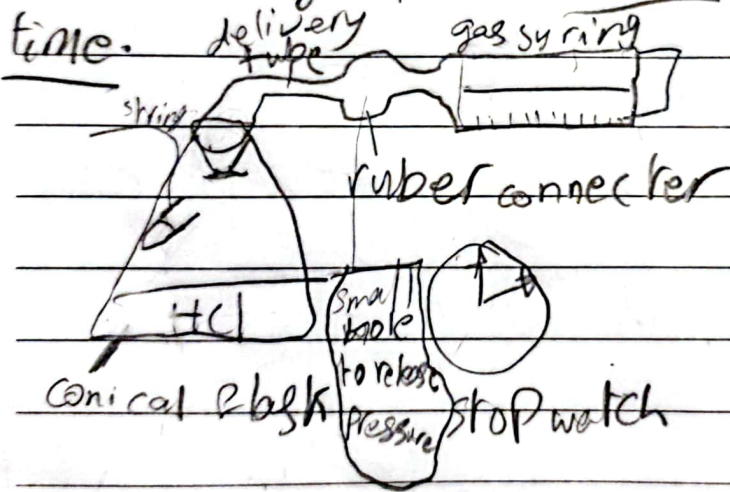 time.
delivery
tube
gas syring
string
ruber connecter
HCl
small
hole
to release
pressure
conical flask
stop watch